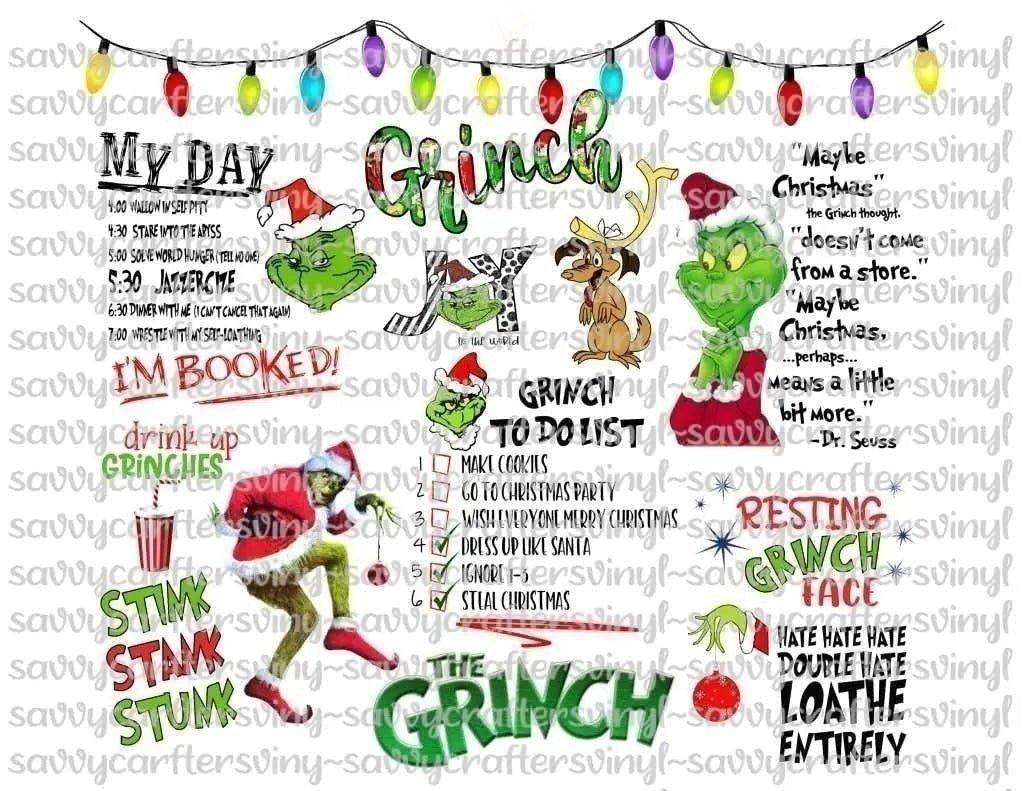 MY DAY
4:00 WALLOW IN SELF PITY
4:30 STARE INTO THE ABYSS
5:00 SOLVE WORLD HUNGER (TELL NO ONE)
5:30 JAZZERCIZE
6:30 DINNER WITH ME (I CAN'T CANCEL THAT AGAIN)
7:00 WRESTLE WITH MY SELF-LOATHING
I'M BOOKED!
Grinch
JOY
to the world
"Maybe
Christmas"
the Grinch thought,
"doesn't come
from a store."
"Maybe
Christmas,
...perhaps...
means a little
bit more."
-Dr. Seuss
drink up
GRINCHES
STINK
STANK
STUNK
GRINCH
TO DO LIST
1 MAKE COOKIES
2 GO TO CHRISTMAS PARTY
3 WISH EVERYONE MERRY CHRISTMAS
4 DRESS UP LIKE SANTA
5 IGNORE 1-3
6 STEAL CHRISTMAS
THE
GRINCH
RESTING
GRINCH
FACE
HATE HATE HATE
DOUBLE HATE
LOATHE
ENTIRELY
savvycarftersvinyl~savvycraftersvinyl~savvycraftersvinyl